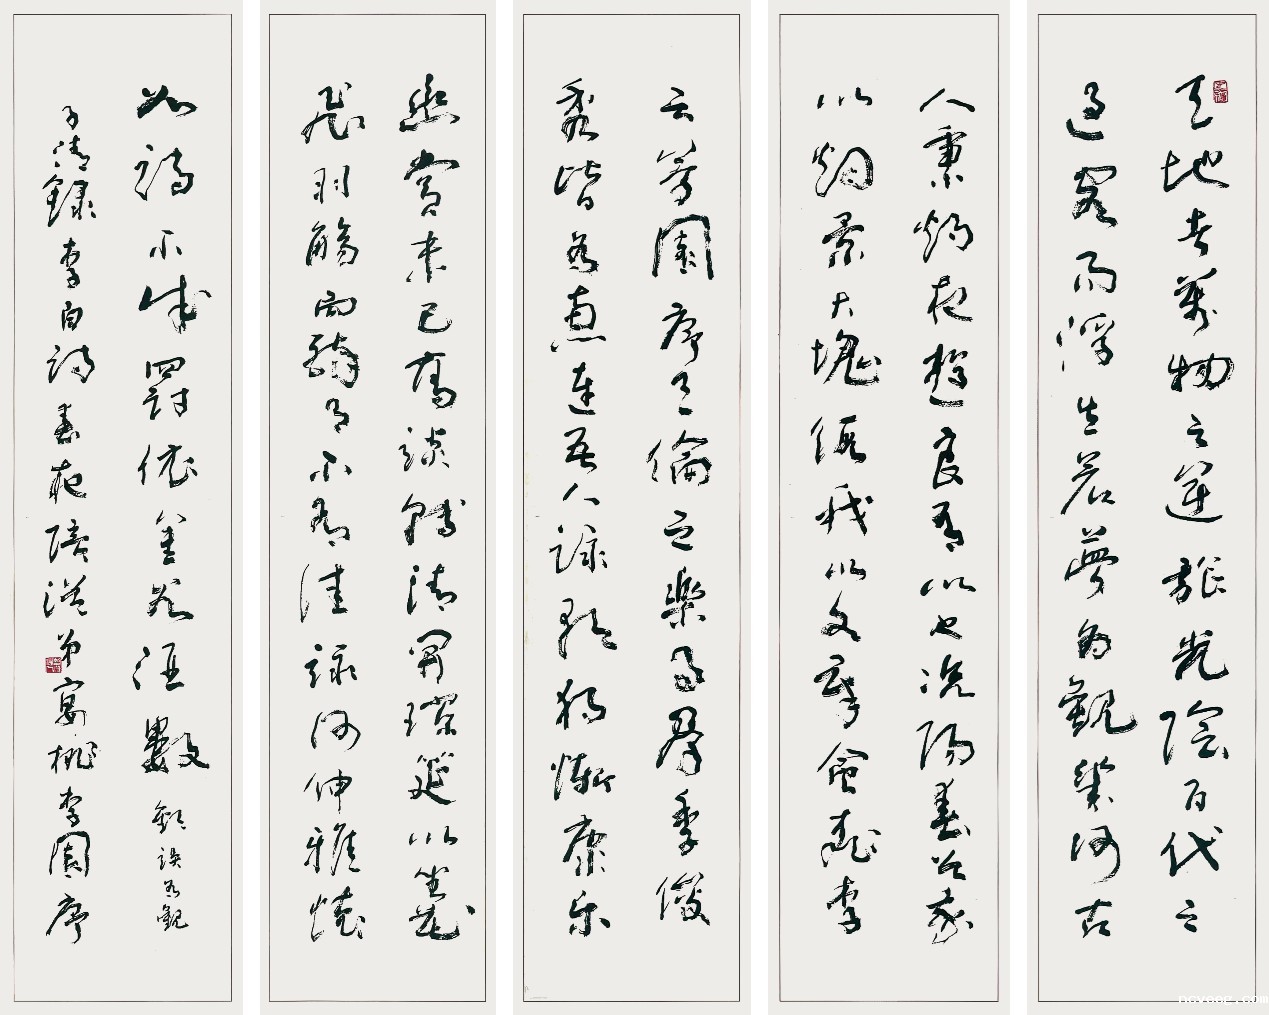 天地者萬物之逆旅光陰百代之
過客而浮生若夢為觀幾何古
人秉燭夜遊良有以也況陽春召我
以烟景大塊假我以文章會桃李
之芳園序天倫之樂事群季俊
秀皆為惠連吾人詠歌獨慚康乐
幽賞未已高談轉清開瓊筵以坐花
飛羽觴而醉月不有佳詠何伸雅懷
如詩不成罰依金谷酒數 歡誤為觀
子清錄李白詩春夜陪從弟宴桃李園序